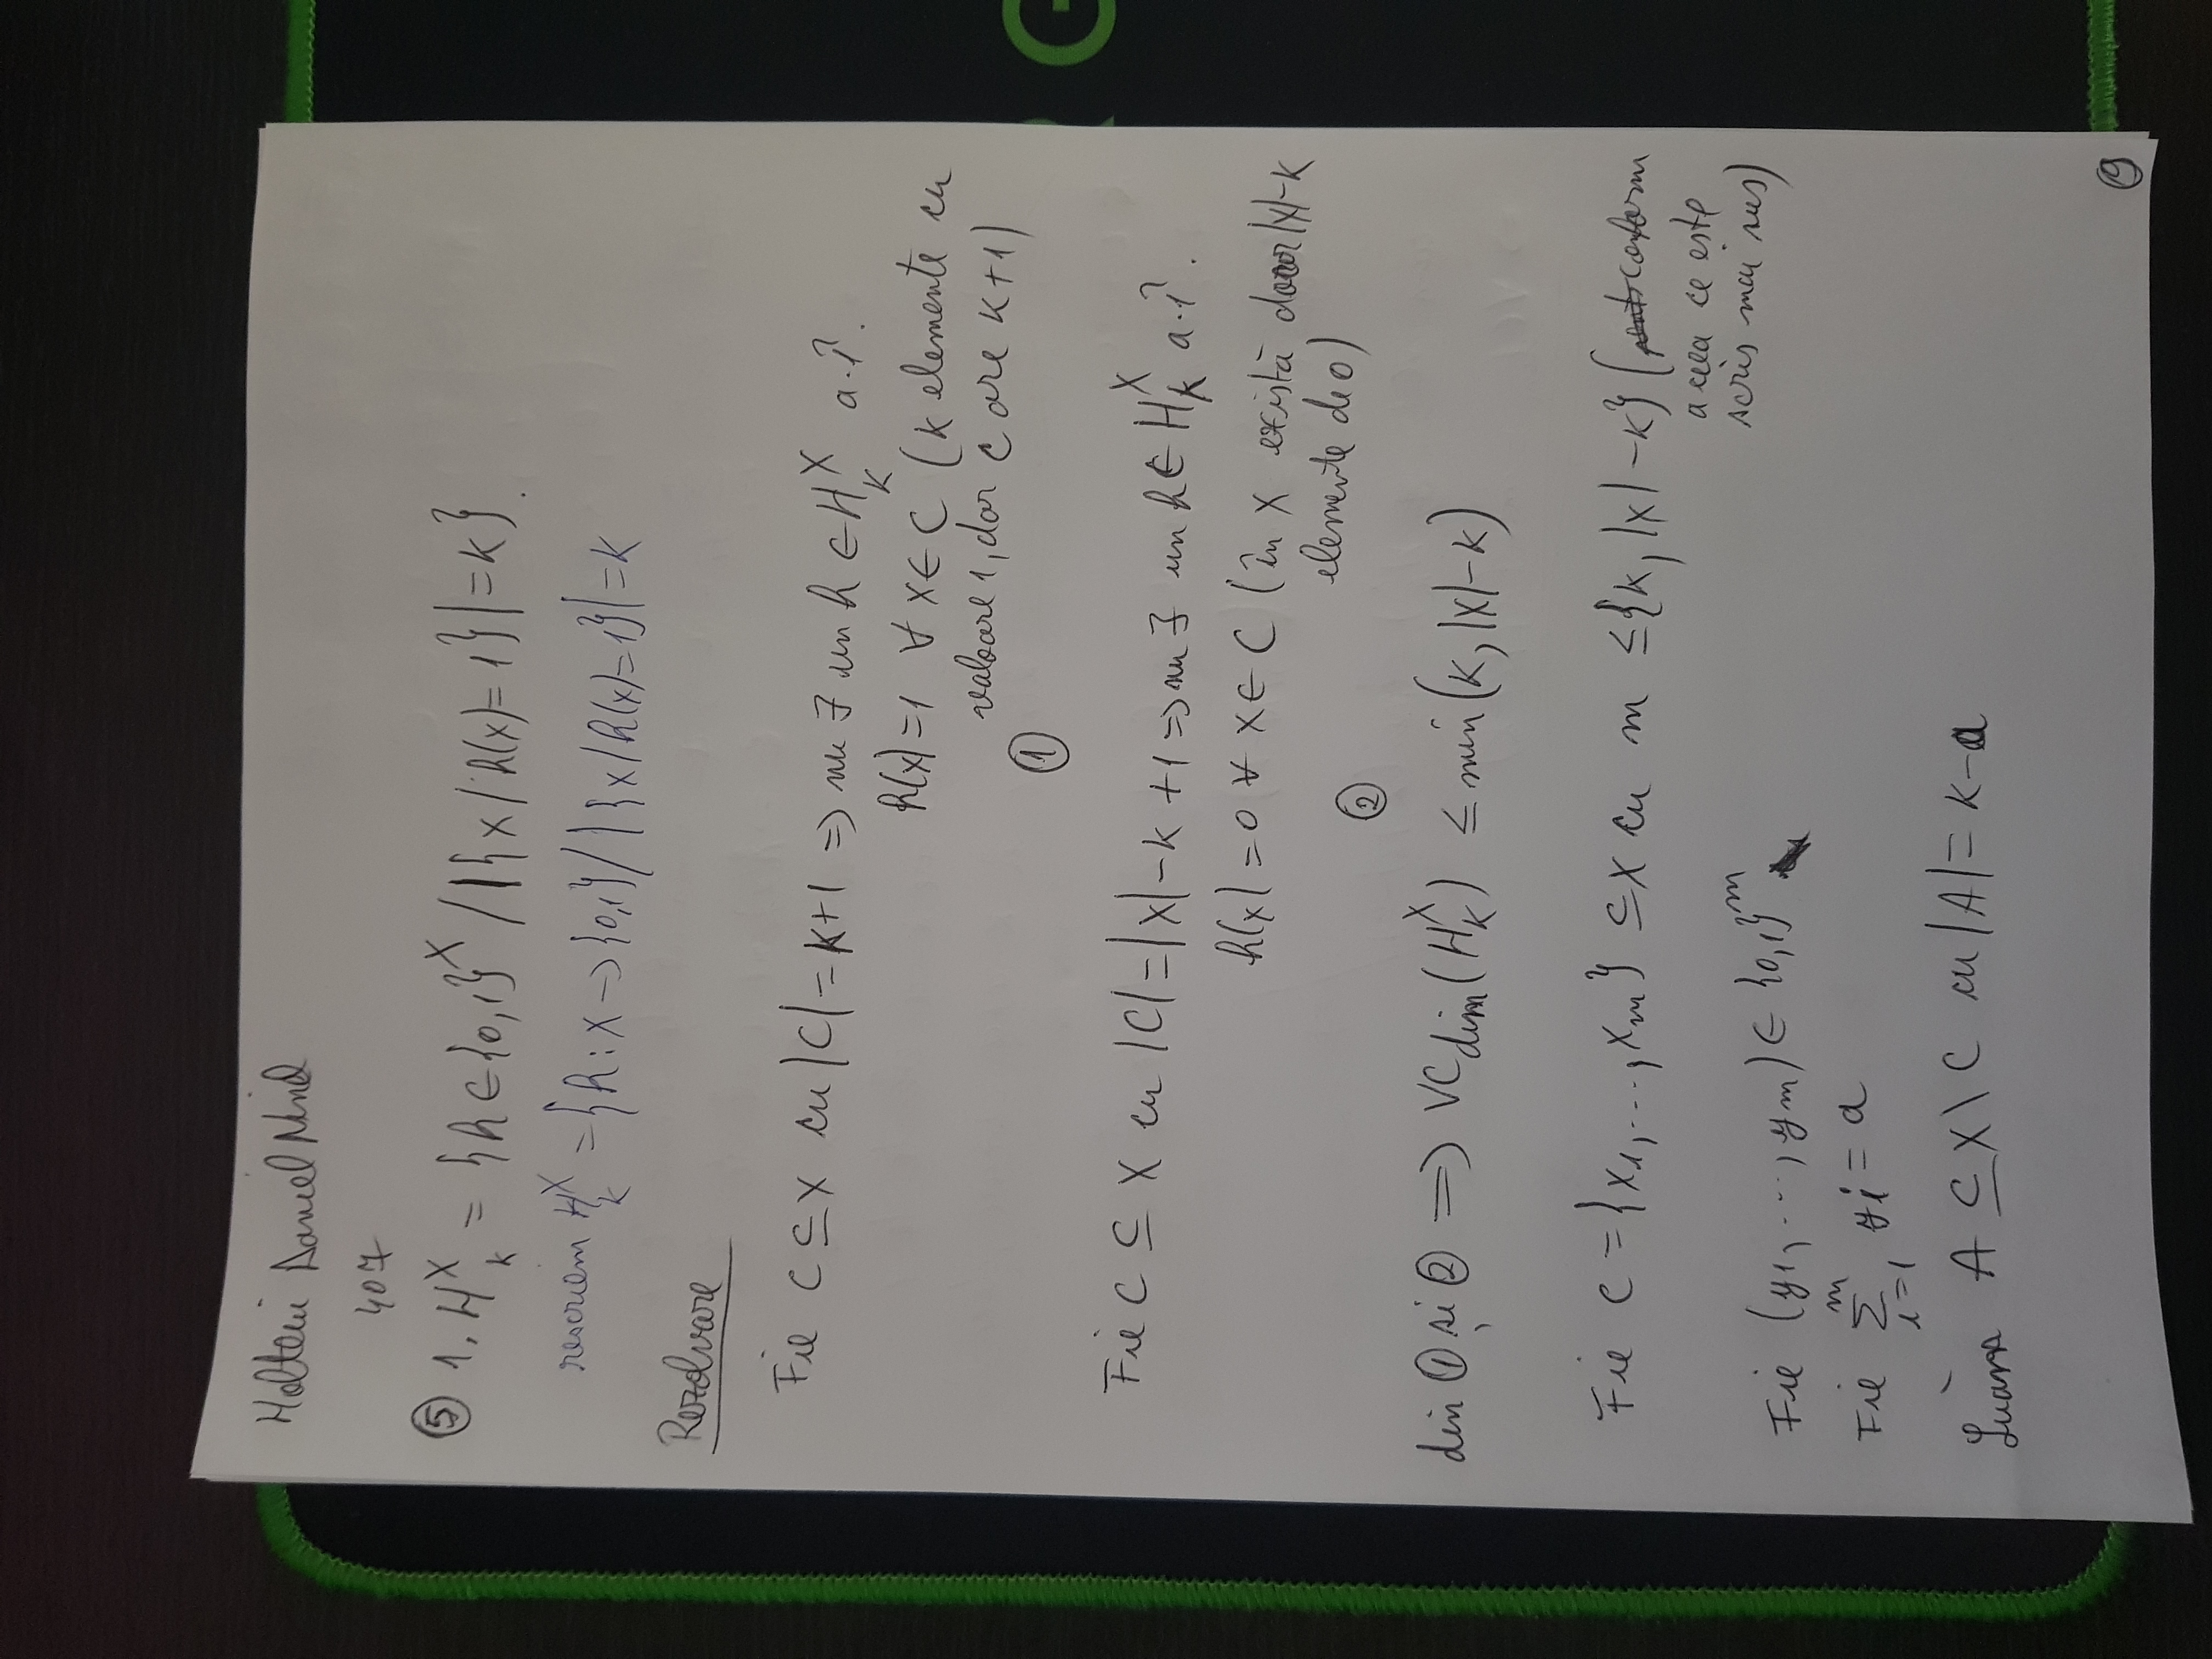 Holteiu Daniel Ninel
407
⑤ 1. H_k^X = {h ∈ {0,1}^X / |{x / h(x)=1}| = k}.
rescriem H_k^X = {h: X → {0,1} / |{x / h(x)=1}| = k
Rezolvare
Fie C ⊆ X cu |C| = k+1 ⇒ nu ∃ un h ∈ H_k^X a.î.
h(x)=1 ∀ x ∈ C (k elemente cu
valoare 1, dar C are k+1)
①
Fie C ⊆ X cu |C| = |X| - k + 1 ⇒ nu ∃ un h ∈ H_k^X a.î.
h(x) = 0 ∀ x ∈ C (în X există doar |X| - k
elemente de 0)
②
din ① și ② ⇒ VCdim(H_k^X) ≤ min(k, |X| - k)
Fie C = {x_1, ..., x_m} ⊆ X cu m ≤ {k, |X| - k} (conform
a ceea ce este
scris mai sus)
Fie (y_1, ..., y_m) ∈ {0,1}^m
Fie ∑_{i=1}^m y_i = a
Luăm A ⊆ X \ C cu |A| = k - a
⑨
G